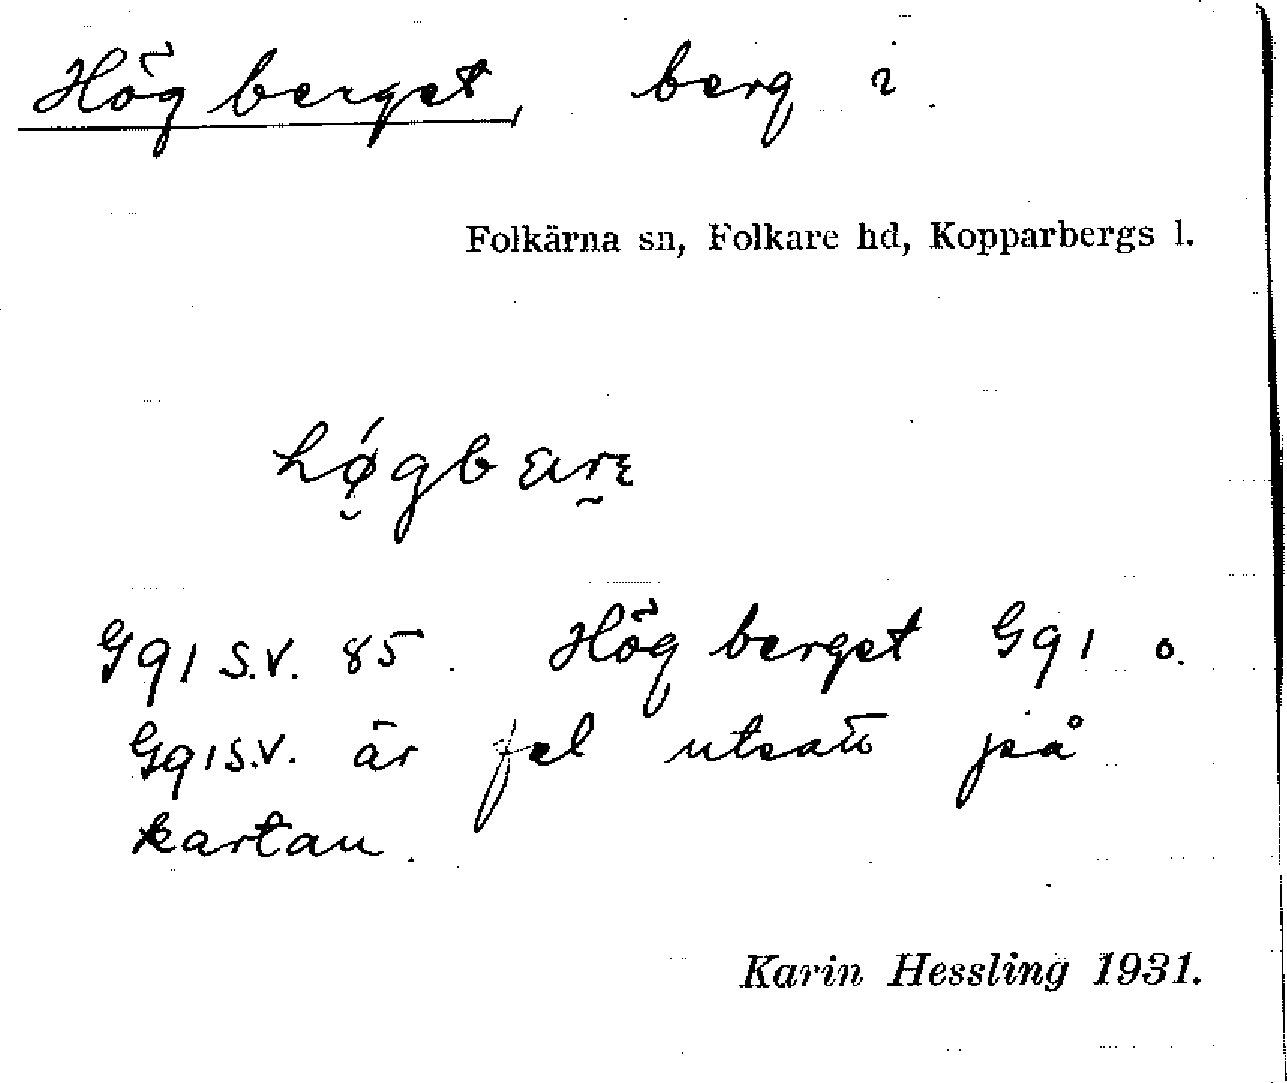 Högberget, berg i
Folkärna sn, Folkare hd, Kopparbergs l.
Gg 1 S.V. 85. Högberget Gg 1 o.
Gg 1 S.V. är fel utsatt på
kartan.
Karin Hessling 1931.